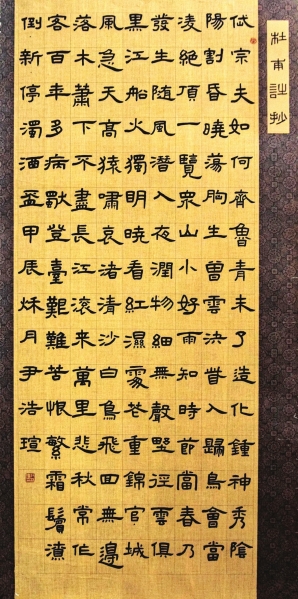 杜甫詩抄
岱宗夫如何齊魯青未了造化鍾神秀陰
陽割昏曉蕩胸生曾雲決眥入歸鳥會當
凌絕頂一覽衆山小好雨知時節當春乃
發生隨風潛入夜潤物細無聲野徑雲俱
黑江船火獨明曉看紅濕處花重錦官城
風急天高猿嘯哀渚清沙白鳥飛回無邊
落木蕭下不盡長江滾來萬里悲秋常作
客百年多病獨登臺艱難苦恨繁霜鬢潦
倒新停濁酒盃甲辰秌月尹浩瑄